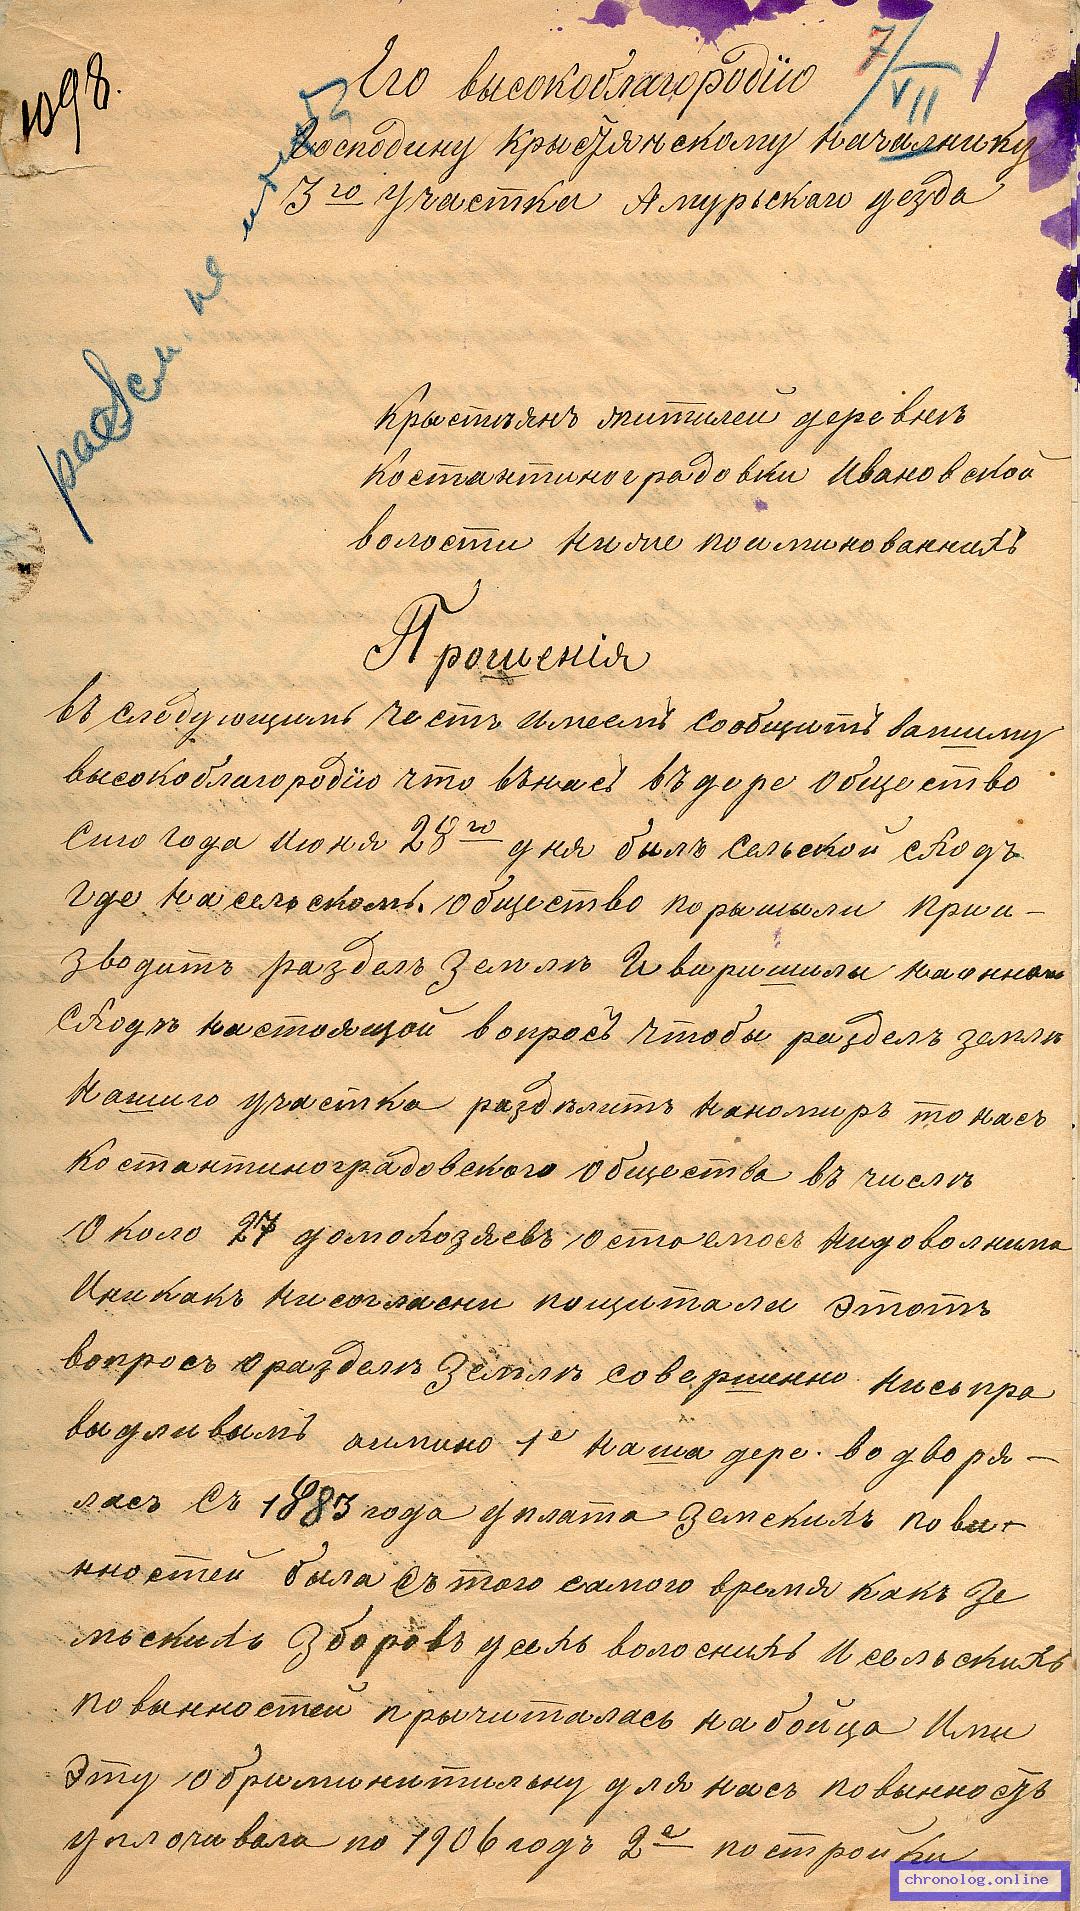 1098.
7/VII
Его высокоблагородїю
Господину Крыстянскому началнику
3го участка Амурьскаго уезда
Крыстъянъ житилей деревнѣ
Костантиноградовки Ивановской
волости ниже поиминованнихъ
Прошенія
въ следующимъ честь имеемъ сообщить вашиму
высокоблагородїю что внасъ въ дере обществo
сиго года Июня 28го дня былъ сельской сходъ
где на сельскомъ общество порышыли прии-
зводить разделъ землѣ И виришилы на онном
сходѣ настоящой вопросъ чтобы разделъ землѣ
нашиго участка раздѣлить наномиръ то насъ
Костантиноградовского общества въ числѣ
около 27 домохозяевъ остаемось нидоволнима
Иникакъ нисогласни пощитали этотъ
вопросъ оразделѣ землѣ совершенно нисьпра
выдливымъ аимино 1е наша дере. водворя-
лась съ 1883 года уплата земскихъ пови-
нностей была стого самого время какъ зе
мьскихъ зборовъ усехъ волоснихъ И сельскихъ
повынностей прычиталась на бойца Ими
эту обриминитильну для насъ повынность
уплочивала по 1906 годъ 2е постройки
chronolog.online